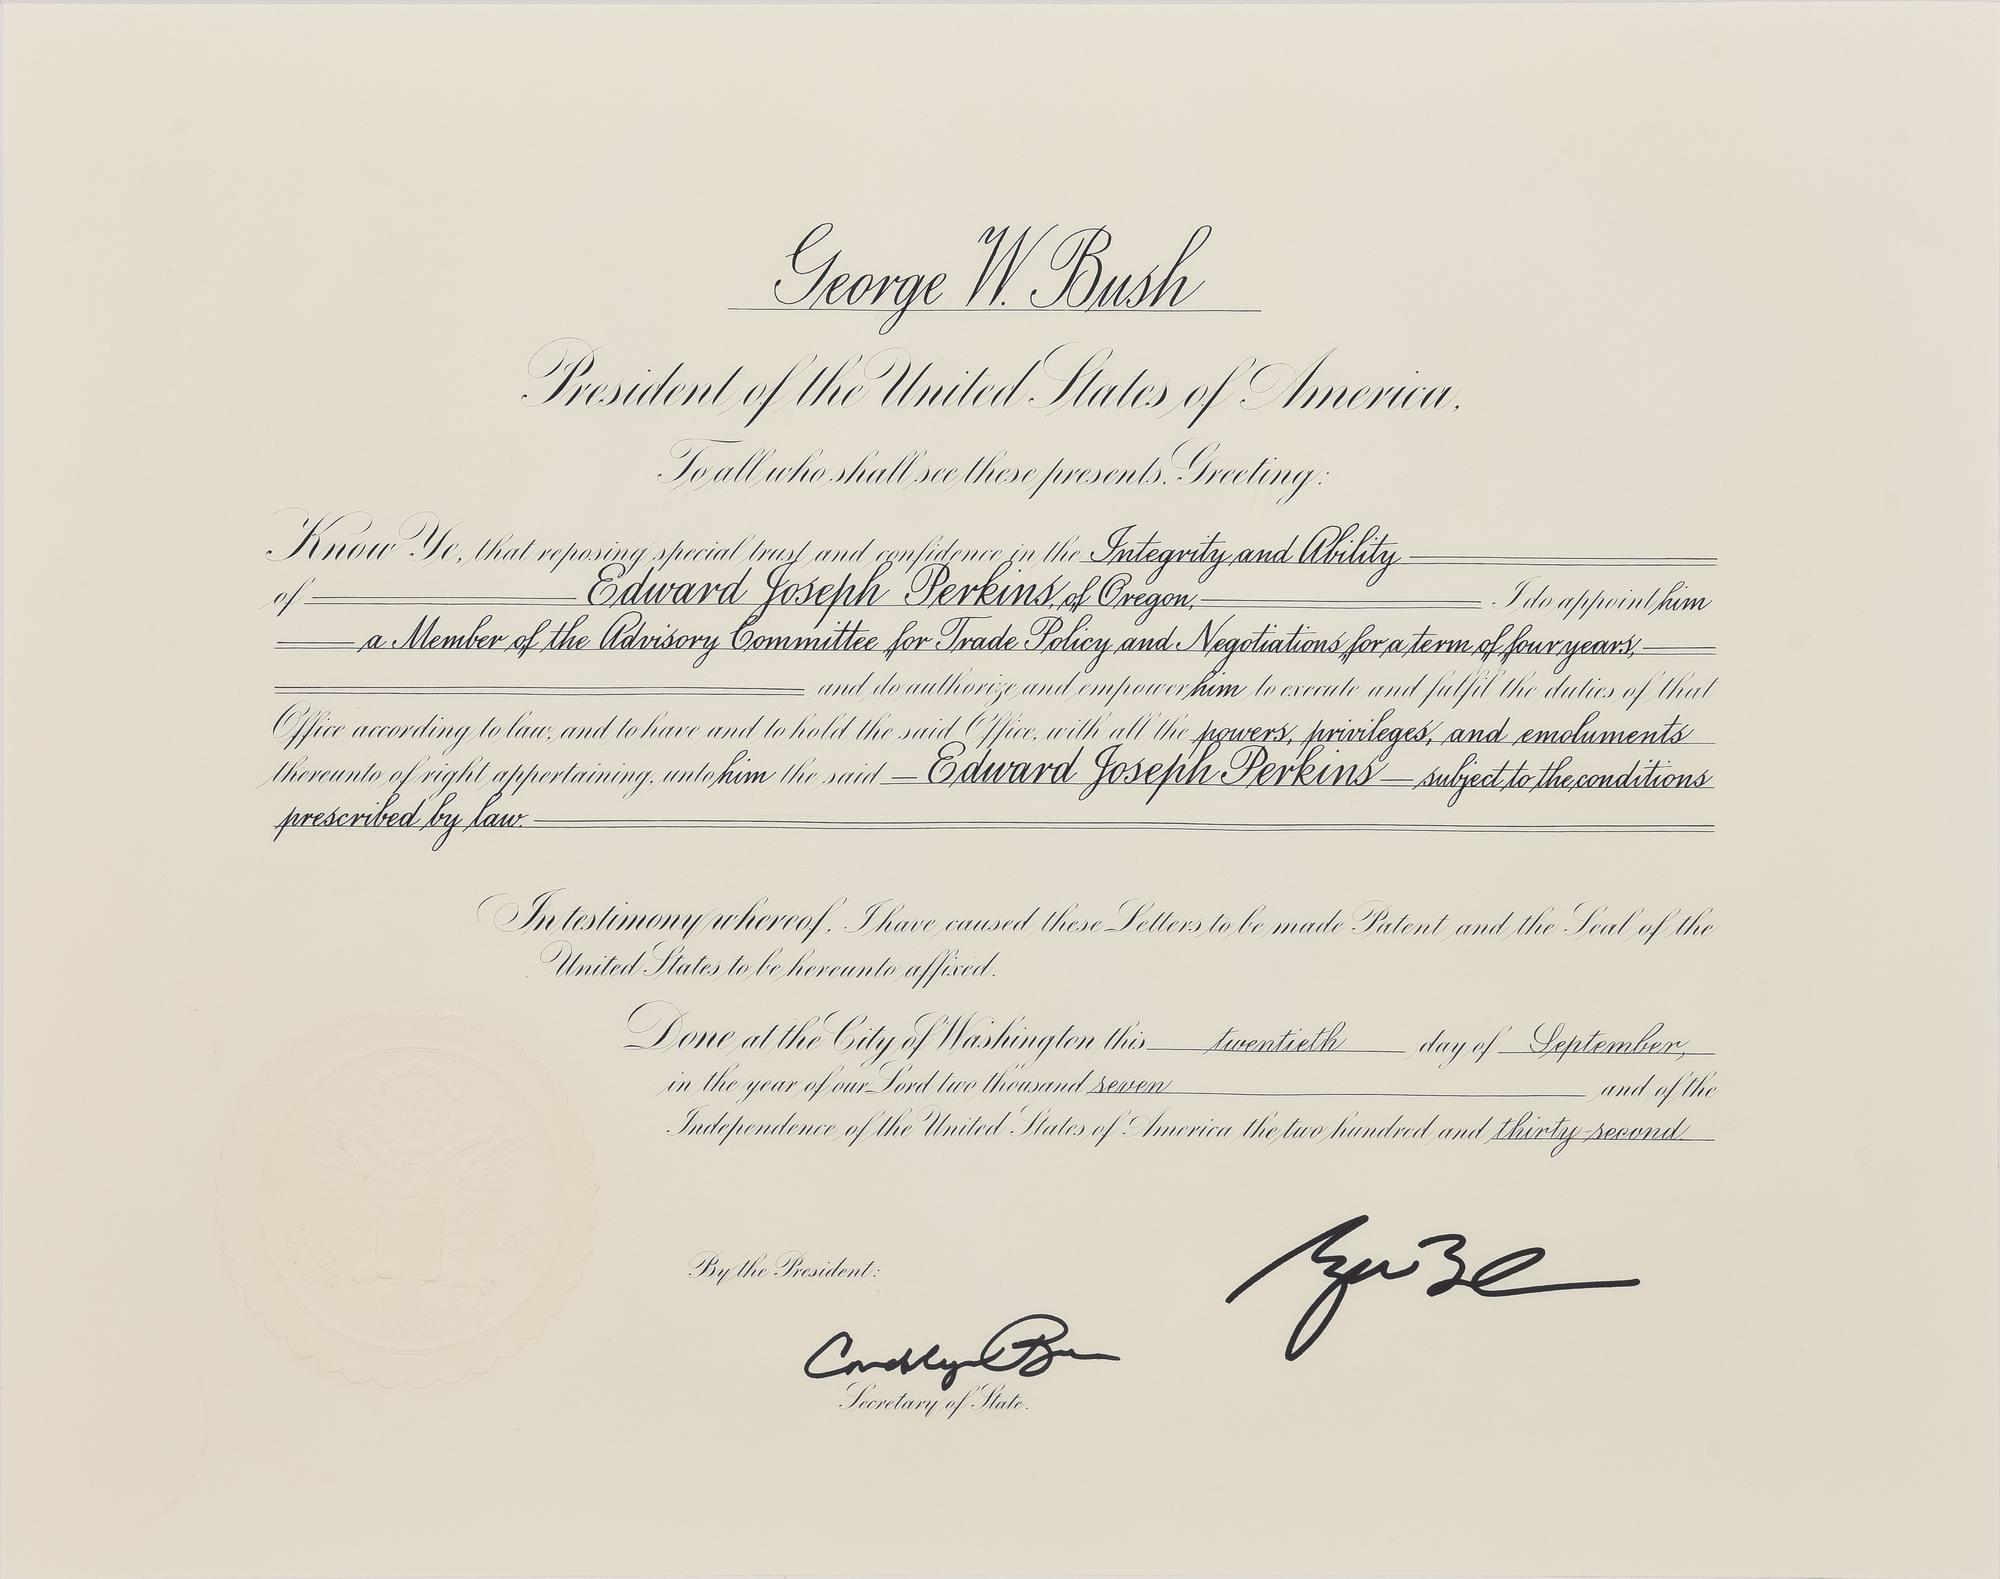 George W. Bush
President of the United States of America.
To all who shall see these presents. Greeting:
Know Ye, that reposing special trust and confidence in the Integrity and Ability
of Edward Joseph Perkins, of Oregon, I do appoint him
a Member of the Advisory Committee for Trade Policy and Negotiations for a term of four years,
and do authorize and empower him to execute and fulfil the duties of that
Office according to law, and to have and to hold the said Office, with all the powers, privileges, and emoluments
thereunto of right appertaining, unto him the said Edward Joseph Perkins subject to the conditions
prescribed by law.
In testimony whereof, I have caused these Letters to be made Patent and the Seal of the
United States to be hereunto affixed.
Done at the City of Washington this twentieth day of September,
in the year of our Lord two thousand seven and of the
Independence of the United States of America the two hundred and thirty-second.
By the President:
Secretary of State.